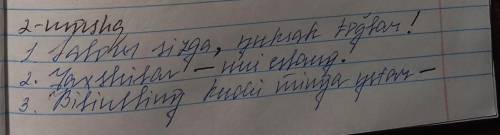 2-mashq
1. Salom sizga, yuksak tog'lar!
2. Yaxshilar – ni eslang.
3. Bilimning kuchi mingga yetar –